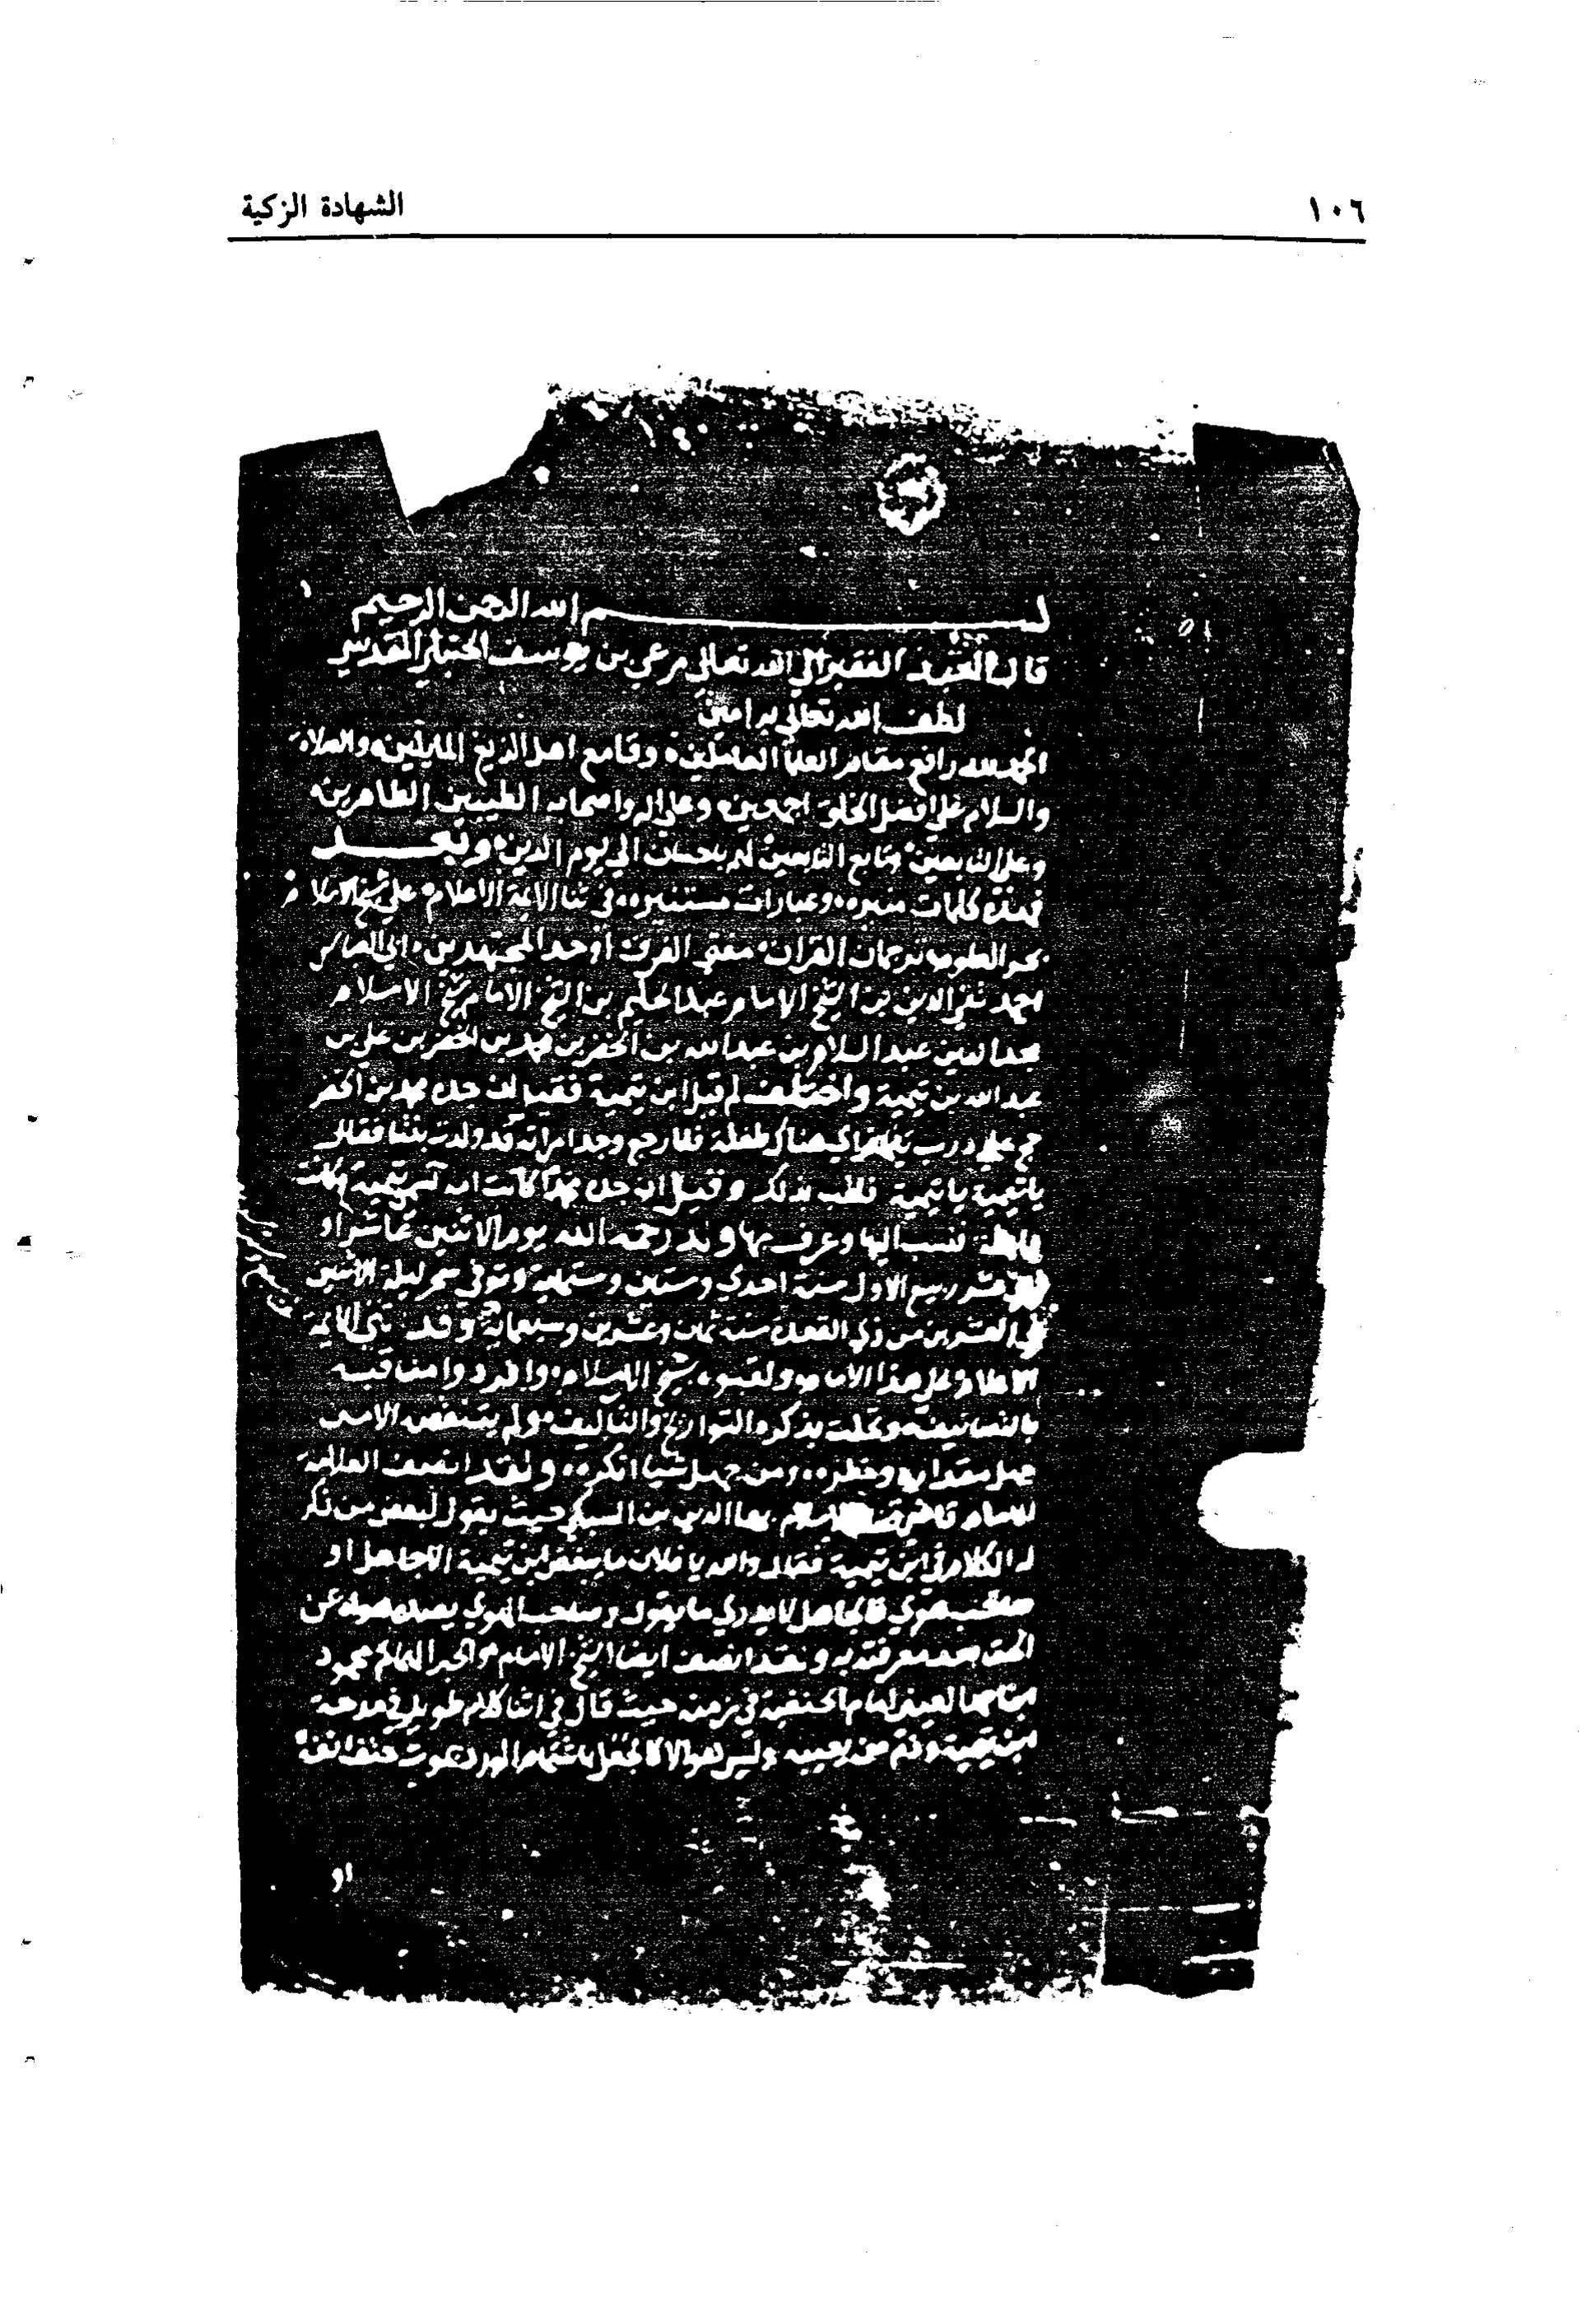 ١٠٦
الشهادة الزكية
١
بسم الله الرحمن الرحيم
قال العبد الفقير الي الله تعالي مرعي بن يوسف الحنبلي المقدسي
لطف الله تعالي به امين
الحمد لله رافع مقام العلما العاملين وقامع اهل الزيغ المايلين والصلاة
والسلام علي افضل الخلق اجمعين وعلي اله واصحابه الطيبين الطاهرين
وعلي التابعين وتابع التابعين لهم باحسان الي يوم الدين وبعد
فهذه كلمات منيره وعبارات مستنيره في ثنا الائمة الاعلام علي شيخ الاسلام
بحر العلوم ترجمان القران مفتي الفرق اوحد المجتهدين ابي العباس
احمد تقي الدين بن الشيخ الامام عبد الحليم بن الشيخ الامام شيخ الاسلام
مجد الدين عبد السلام بن عبد الله بن الخضر بن محمد بن الخضر بن علي بن
عبد الله بن تيمية واختلف لم قيل ابن تيمية فقيل ان جده محمد بن الخضر
حج علي درب تيما فراي هناك طفلة فلما رجع وجد امراته قد ولدت بنتا فقال
يا تيمية يا تيمية فلقب بذلك وقيل ان جده محمدا كانت امه تسمي تيمية وكانت
واعظة فنسب اليها وعرف بها ولد رحمه الله يوم الاثنين عاشر او
ثاني عشر ربيع الاول سنة احدي وستين وستماية وتوفي سحر ليلة الاثنين
في العشرين من ذي القعدة سنة ثمان وعشرين وسبعماية وقد اثني الائمة
الاعلام علي هذا الامام ولقبوه شيخ الاسلام وافردوا مناقبه
بالتصانيف وتحلت بذكره التواريخ والتاليف ولم يتنقصه الا من
جهل مقداره وخطره ومن جهل شيا انكره ولقد انصف العلامة
الامام قاضي الاسلام بها الدين بن السبكي حيث يقول لبعض من ذكر
له الكلام في ابن تيمية فقال والله يا فلان ما يبغض ابن تيمية الا جاهل او
صاحب هوي فالجاهل لا يدري ما يقول وصاحب الهوي يصده هواه عن
الحق بعد معرفته به ولقد انصف ايضا الشيخ الامام والحبر العالم محمود
العيني امام الحنفية في زمنه حيث قال في اثنا كلام طويل في مدحة
ابن تيمية وذم من يعيبه وليس هو الا كالجعل باشتمام الورد يموت حتف انفه
او